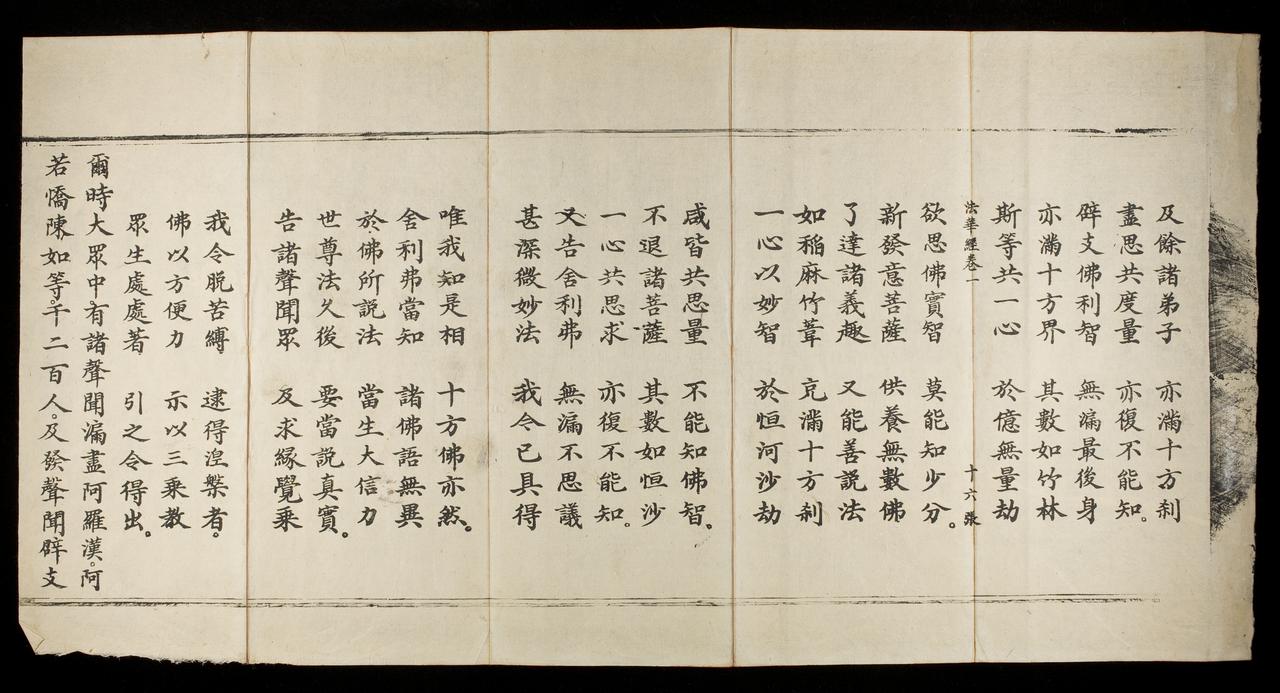 及餘諸弟子　亦滿十方刹
盡思共度量　亦復不能知。
辟支佛利智　無漏最後身
亦滿十方界　其數如竹林
斯等共一心　於億無量劫
法華經卷一　十六張
欲思佛實智　莫能知少分。
新發意菩薩　供養無數佛
了達諸義趣　又能善說法
如稻麻竹葦　充滿十方刹
一心以妙智　於恒河沙劫
咸皆共思量　不能知佛智。
不退諸菩薩　其數如恒沙
一心共思求　亦復不能知。
又告舍利弗　無漏不思議
甚深微妙法　我今已具得
唯我知是相　十方佛亦然。
舍利弗當知　諸佛語無異
於佛所說法　當生大信力
世尊法久後　要當說真實。
告諸聲聞眾　及求緣覺乘
我令脫苦縛　逮得涅槃者。
佛以方便力　示以三乘教
眾生處處著　引之令得出。
爾時大眾中有諸聲聞漏盡阿羅漢。阿
若憍陳如等。千二百人。及發聲聞辟支